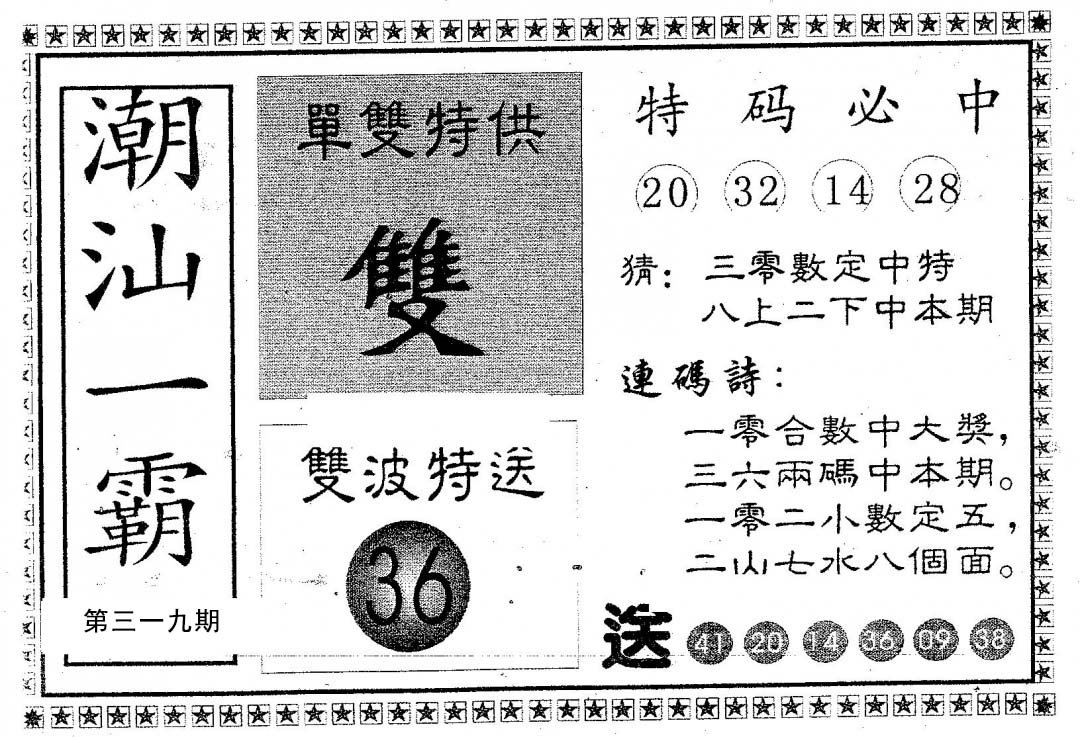 潮汕一霸
第三一九期
單雙特供
雙
雙波特送
36
特码必中
20 32 14 28
猜：三零數定中特
八上二下中本期
連碼詩：
一零合數中大獎，
三六兩碼中本期。
一零二小數定五，
二山七水八個面。
送 41 20 14 36 09 38